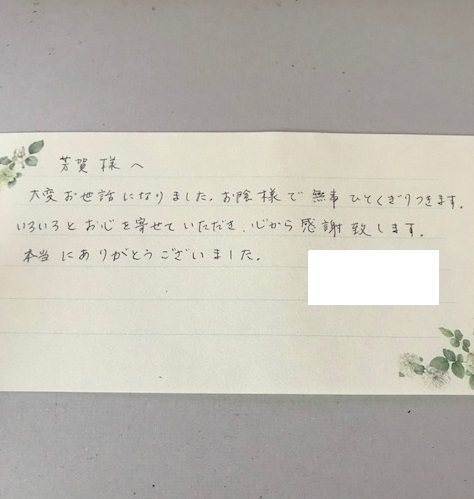 芳賀様へ
大変お世話になりました。お陰様で無事ひとくぎりつきます。
いろいろとお心を寄せていただき、心から感謝致します。
本当にありがとうございました。